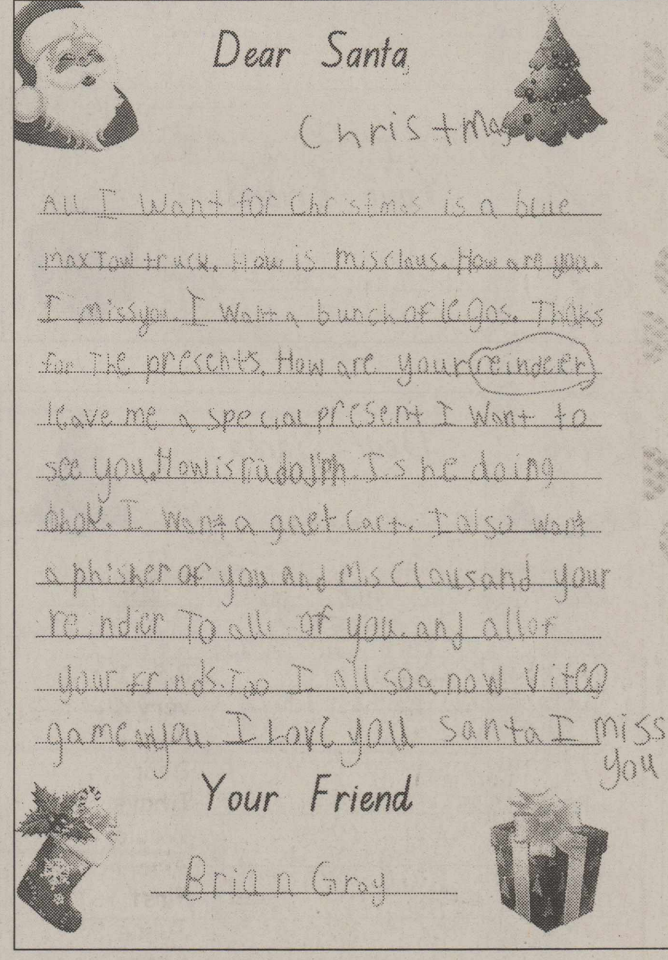 Dear Santa,
Christmas
All I Want for Christmas is a blue
max Tow truck. How is mis claus. How are you.
I miss you. I Want a bunch of legos. Thaks
for The presents. How are your reindeer
leave me a special present I Want to
see you. How is rudolph. Is he doing
ohok. I Want a gnet cart. I also want
a phisher of you and Mis Claus and your
reindier To all of you. and all of
your Frinds. Too I all so a now Viteo
game you. I Love you Santa I miss
you
Your Friend
Brian Gray